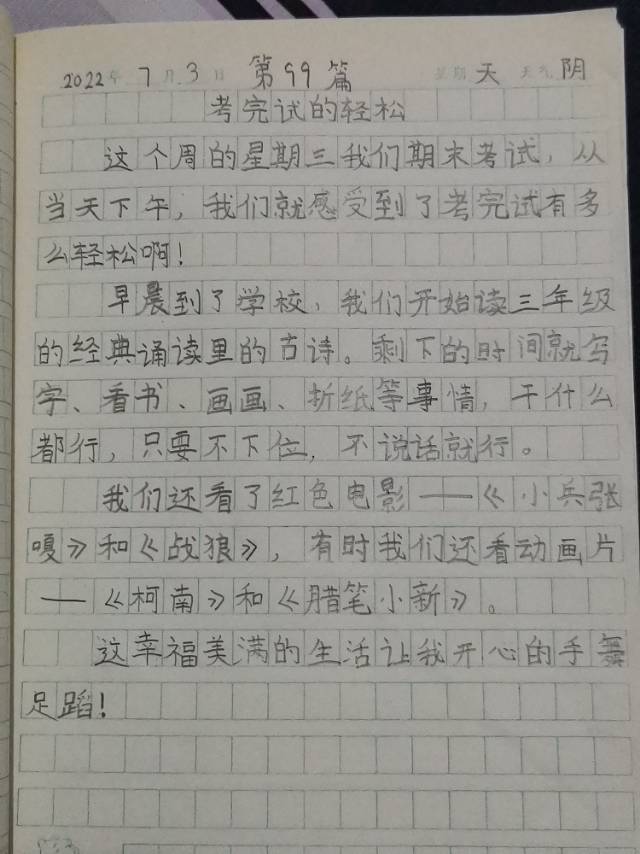 2022年7月3日 第99篇 星期天 天气阴
考完试的轻松
这个周的星期三我们期末考试，从
当天下午，我们就感受到了考完试有多
么轻松啊！
早晨到了学校，我们开始读三年级
的经典诵读里的古诗。剩下的时间就写
字、看书、画画、折纸等事情，干什么
都行，只要不下位，不说话就行。
我们还看了红色电影——《小兵张
嘎》和《战狼》，有时我们还看动画片
——《柯南》和《腊笔小新》。
这幸福美满的生活让我开心的手舞
足蹈！